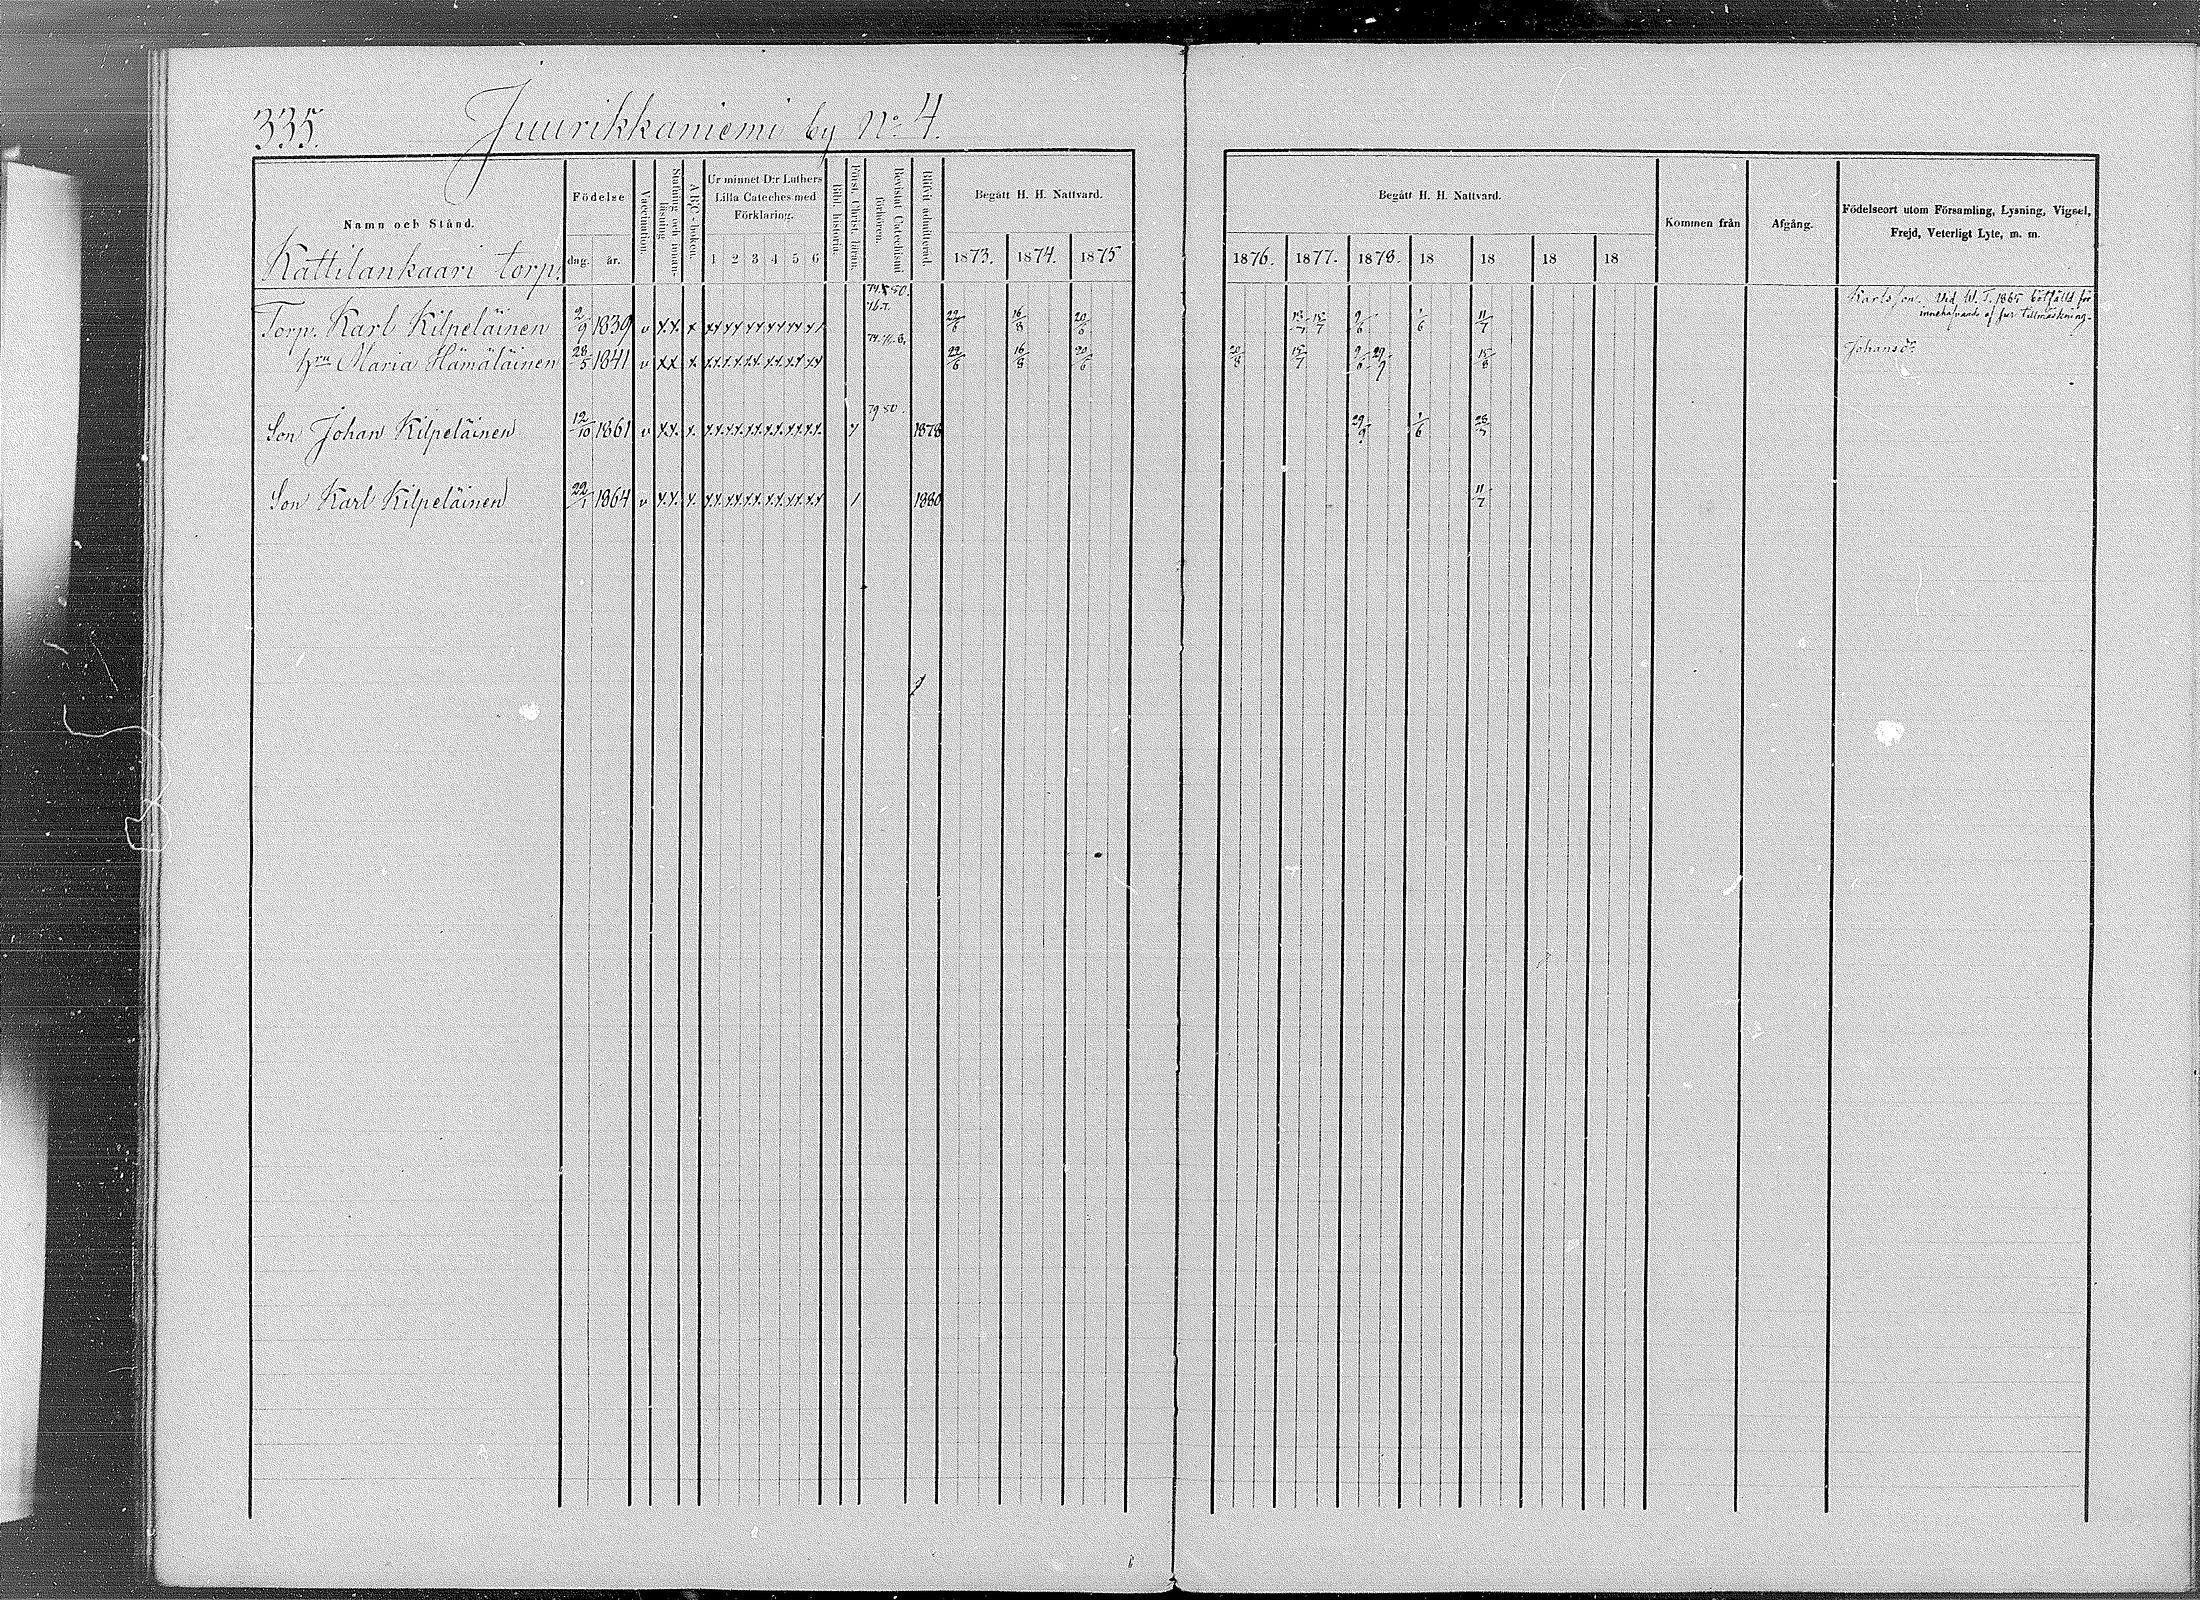 335. Juurikkaniemi by No 4.
Namn och Stånd.
Födelse
dag. år.
Vaccination.
Stafning och innan-läsning
ABC-boken.
Ur minnet D:r Luthers Lilla Cateches med Förklaring.
1 2 3 4 5 6
Bibl. historia.
Först. Christ. läran.
Bevistat Catechismi förhören.
Blifvit admitterad.
Begått H. H. Nattvard.
1873. 1874. 1875
Begått H. H. Nattvard.
1876. 1877. 1878. 18 18 18 18
Kommen från
Afgång.
Födelseort utom Församling, Lysning, Vigsel, Frejd, Veterligt Lyte, m. m.
Kattilankaari torp.
Torp. Karl Kilpeläinen 2/9 1839 v 22/6 16/8 20/6 9/6 1/6 11/7 Karlsson. Vid W. T. 1865 bötfälld för
innehafvande af
Hru Maria Hämäläinen 28/5 1841 v 22/6 16/8 20/6 20/8 15/7 9/6 29/9 15/8 Johansdr
Son Johan Kilpeläinen 12/10 1861 v 79 80. 1878 29/9 1/6
Son Karl Kilpeläinen 22/1 1864 v 1880 11/7